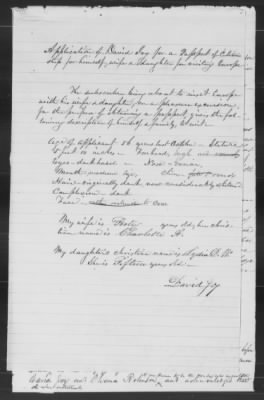 Application of David Joy for a Passport of Citizen
ship for himself, wife & daughter for visiting Europe
The subscriber being about to visit Europe
with his wife & daughter on a pleasure excursion,
for the purpose of obtaining a passport, gives the fol-
lowing description of himself & family, to wit:
Age of applicant 58 years last October - Stature
5 feet 10 inches - Forehead, high
Eyes - dark hazel - Nose - Roman
Mouth - medium size, Chin - round
Hair - originally dark now considerably whitened
Complexion - dark
Face -
My wife is Forty years old, her chris-
tian name is Charlotte A.
My daughter's christian name is Lydia
She is Fifteen years old -
David Joy
David Joy and Obed Robinson and acknowledged that